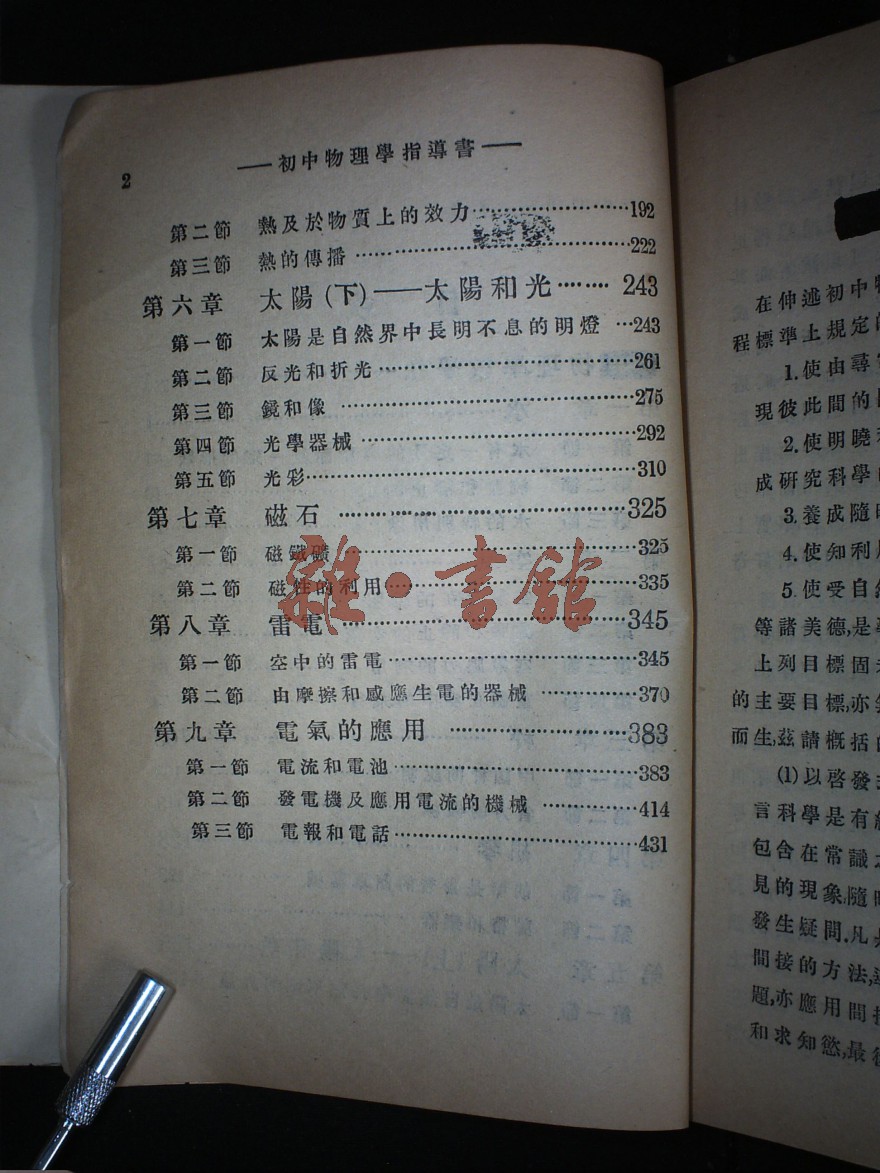 2
——初中物理學指導書——
第二節 熱及於物質上的效力……………………192
第三節 熱的傳播……………………………222
第六章 太陽(下)——太陽和光………243
第一節 太陽是自然界中長明不息的明燈…243
第二節 反光和折光……………………………261
第三節 鏡和像……………………………275
第四節 光學器械……………………………292
第五節 光彩……………………………310
第七章 磁石……………………………325
第一節 磁鐵礦……………………………325
第二節 磁性的利用……………………………335
第八章 雷電……………………………345
第一節 空中的雷電……………………………345
第二節 由摩擦和感應生電的器械…………370
第九章 電氣的應用…………………383
第一節 電流和電池……………………………383
第二節 發電機及應用電流的機械…………414
第三節 電報和電話……………………………431
雜·書館
在伸述初中物
程標準上規定的
1.使由尋
現彼此間的
2.使明曉
成研究科學
3.養成隨
4.使知利
5.使受自然
等諸美德,是
上列目標固
的主要目標,亦
而生,茲請概括
(1)以啓發
言科學是有
包含在常識之
見的現象,隨時
發生疑問.凡
間接的方法,
題,亦應用間接
和求知慾,最後